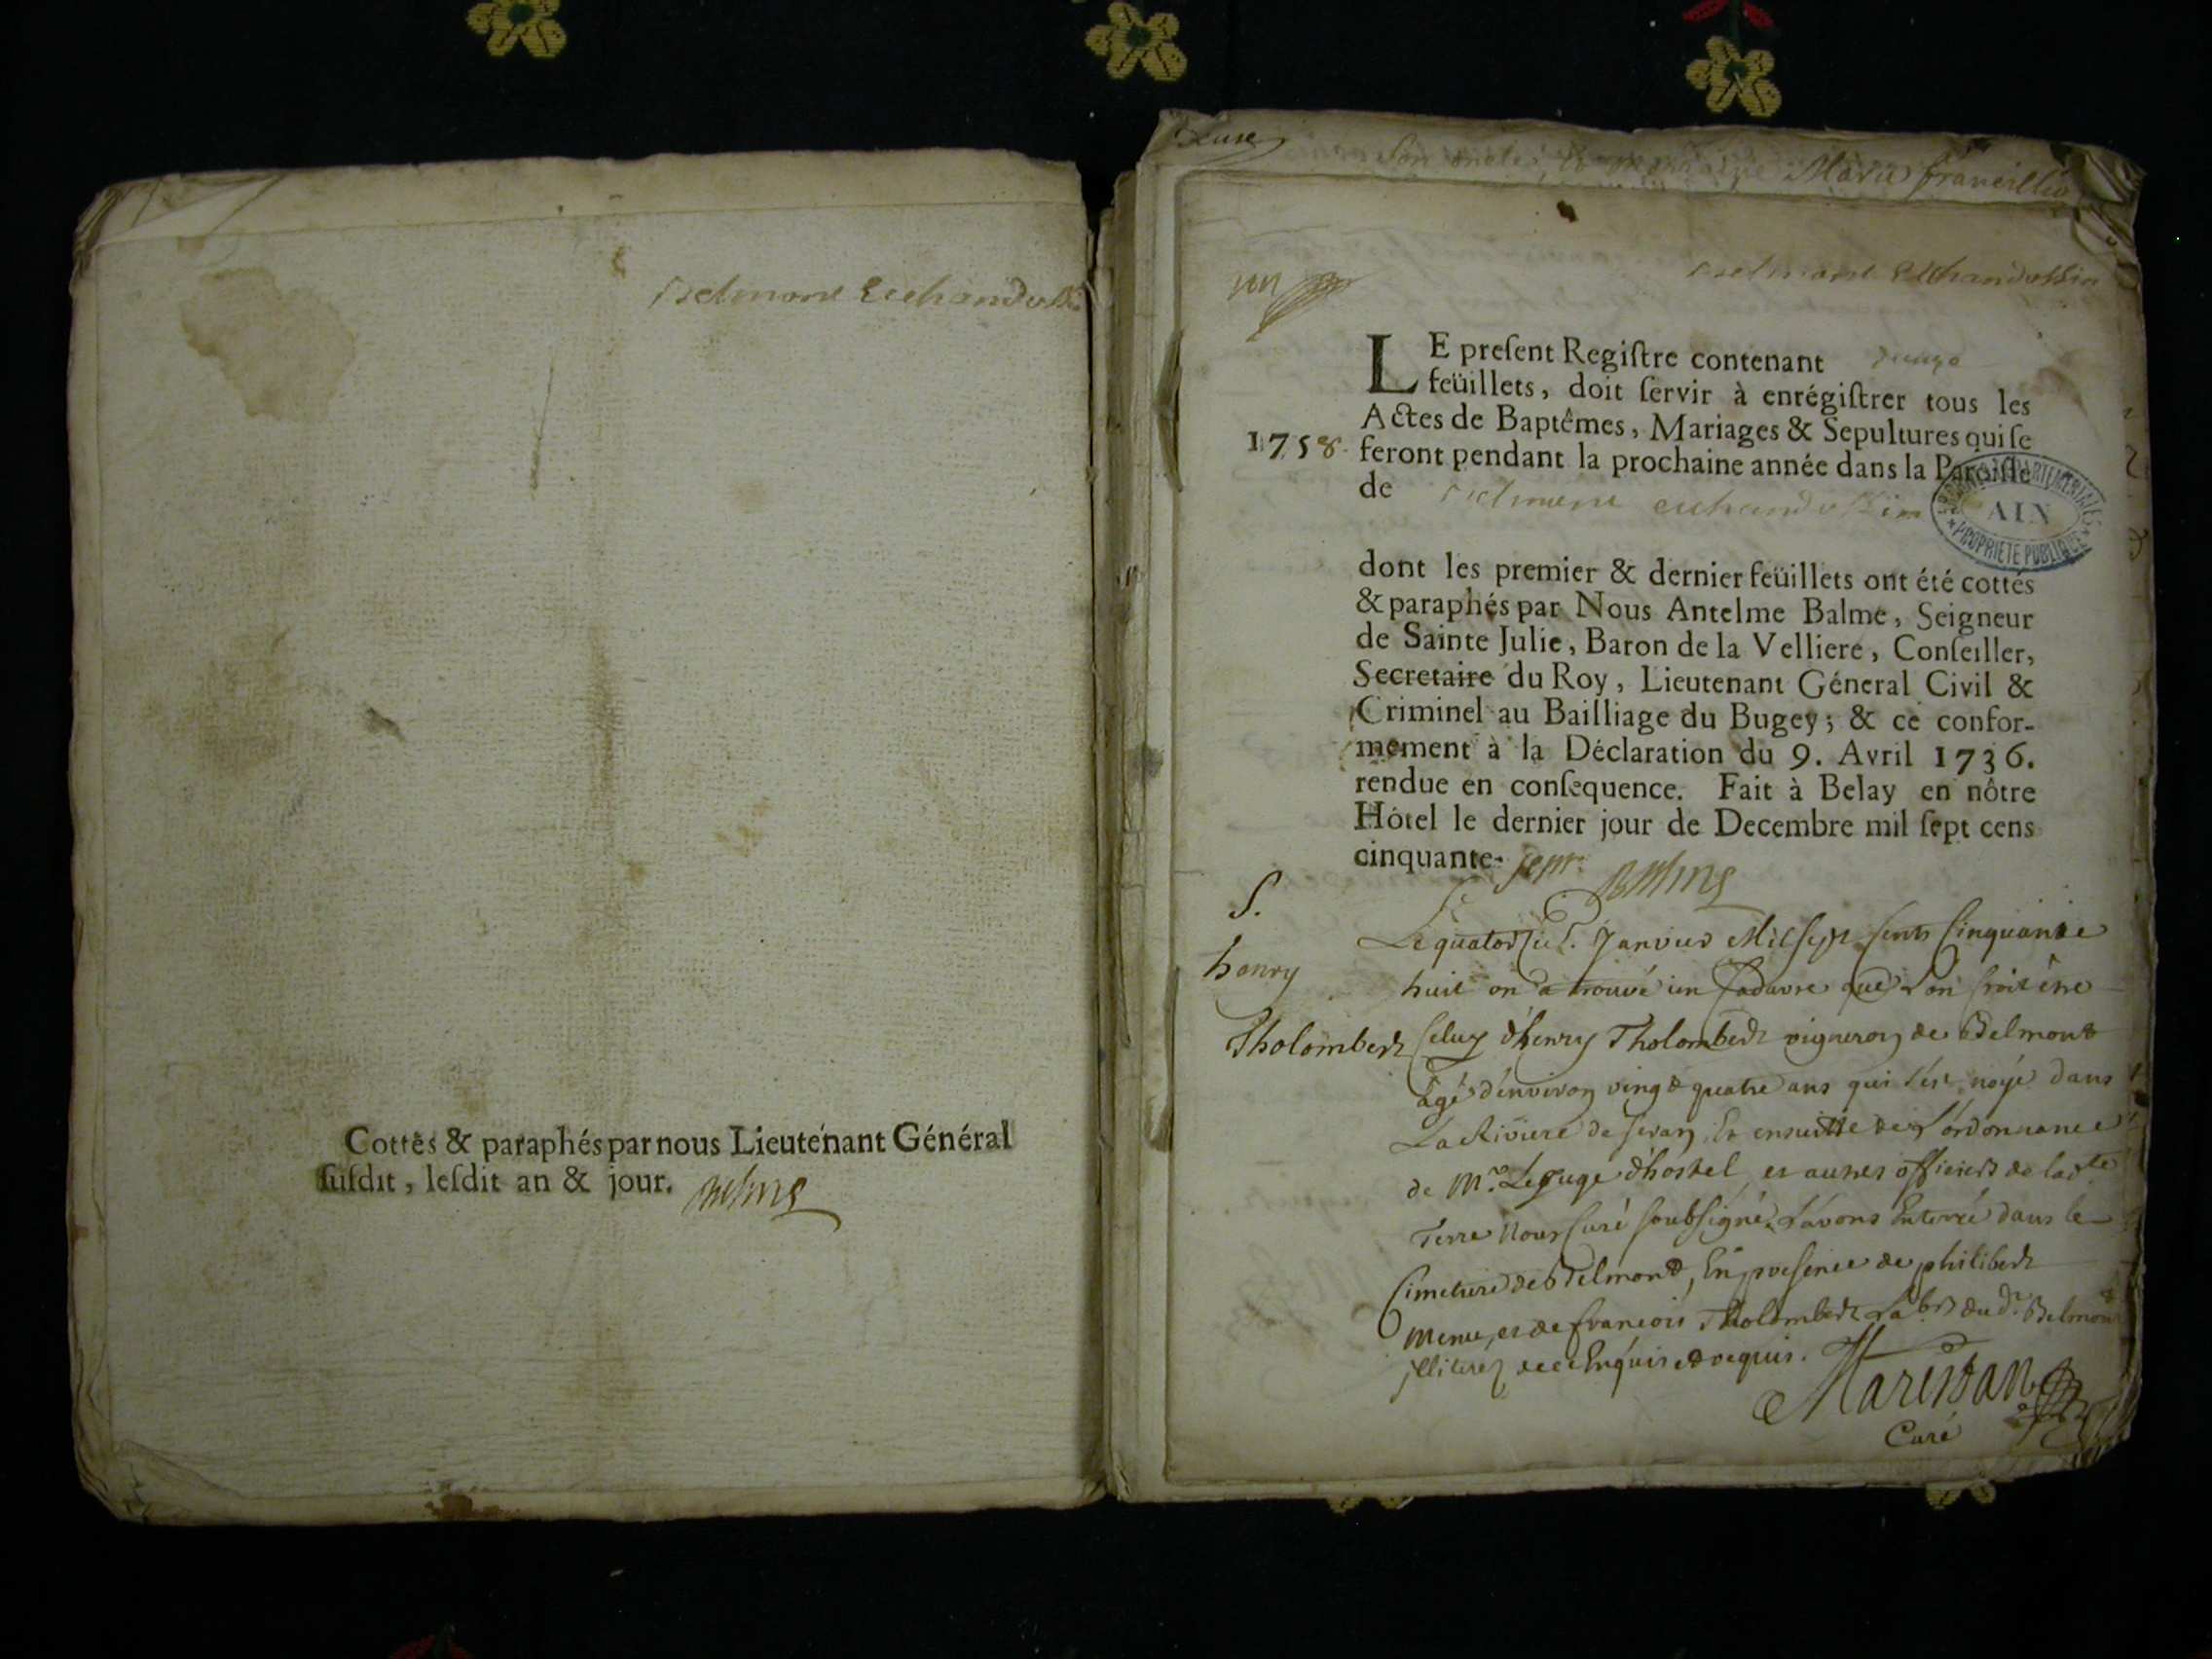 Belmont Echandossin
Cottés & paraphés par nous Lieutenant Général
ſuſdit, leſdit an & jour. Balme
Marie
un
Belmont Echandossin
LE preſent Regiſtre contenant douze
feüillets, doit ſervir à enrégiſtrer tous les
Actes de Baptêmes, Mariages & Sepultures qui ſe
1758 feront pendant la prochaine année dans la Paroiſſe
de Belmont echandossin
ARCHIVES DEPARTEMENTALES
AIN
PROPRIETE PUBLIQUE
dont les premier & dernier feüillets ont été cottés
& paraphés par Nous Antelme Balme, Seigneur
de Sainte Julie, Baron de la Velliere, Conſeiller,
Secretaire du Roy, Lieutenant Géneral Civil &
Criminel au Bailliage du Bugey; & ce confor-
mement à la Déclaration du 9. Avril 1736.
rendue en conſequence. Fait à Belay en nôtre
Hôtel le dernier jour de Decembre mil ſept cens
cinquante-sept. Balme
S.
henry
Tholombert
Le quatorzie. Janvier Mil sept sents Cinquante
huit on a trouvé un Cadavre que L'on croit être
Celuy d'henry Tholombert vigneron de Belmont
âgé d'environ vingt quatre ans qui s'est noyé dans
La Riviere de seran, Et ensuitte de L'ordonnance
de Mr. Le Juge d'hostel, et autres officiers de ladte.
Terre Nous Curé soubsigné L'avons Enterré dans le
Cimetiere de Belmont, En presence de philibert
menu, et de francois Tholombert Labrs. du dt. Belmont
illiterez de ce Enquis et requis.
Marestan
Curé